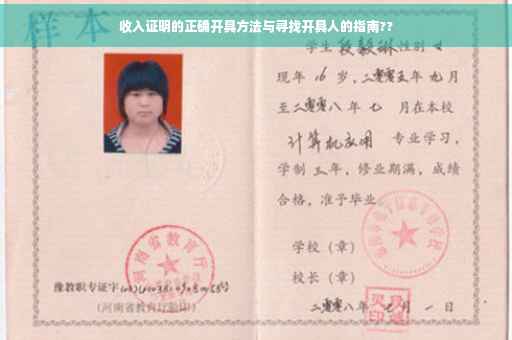 收入证明的正确开具方法与寻找开具人的指南??
样本
学生段毅琳性别女
现年16岁,二零零五年九月
至二零零八年七月在本校
计算机应用 专业学习,
学制三年,修业期满,成绩
合格,准予毕业
学校(章)
校长(章)
二零零八年 月一日
河南省教育厅
豫教职专证字
(河南省教育厅验印)